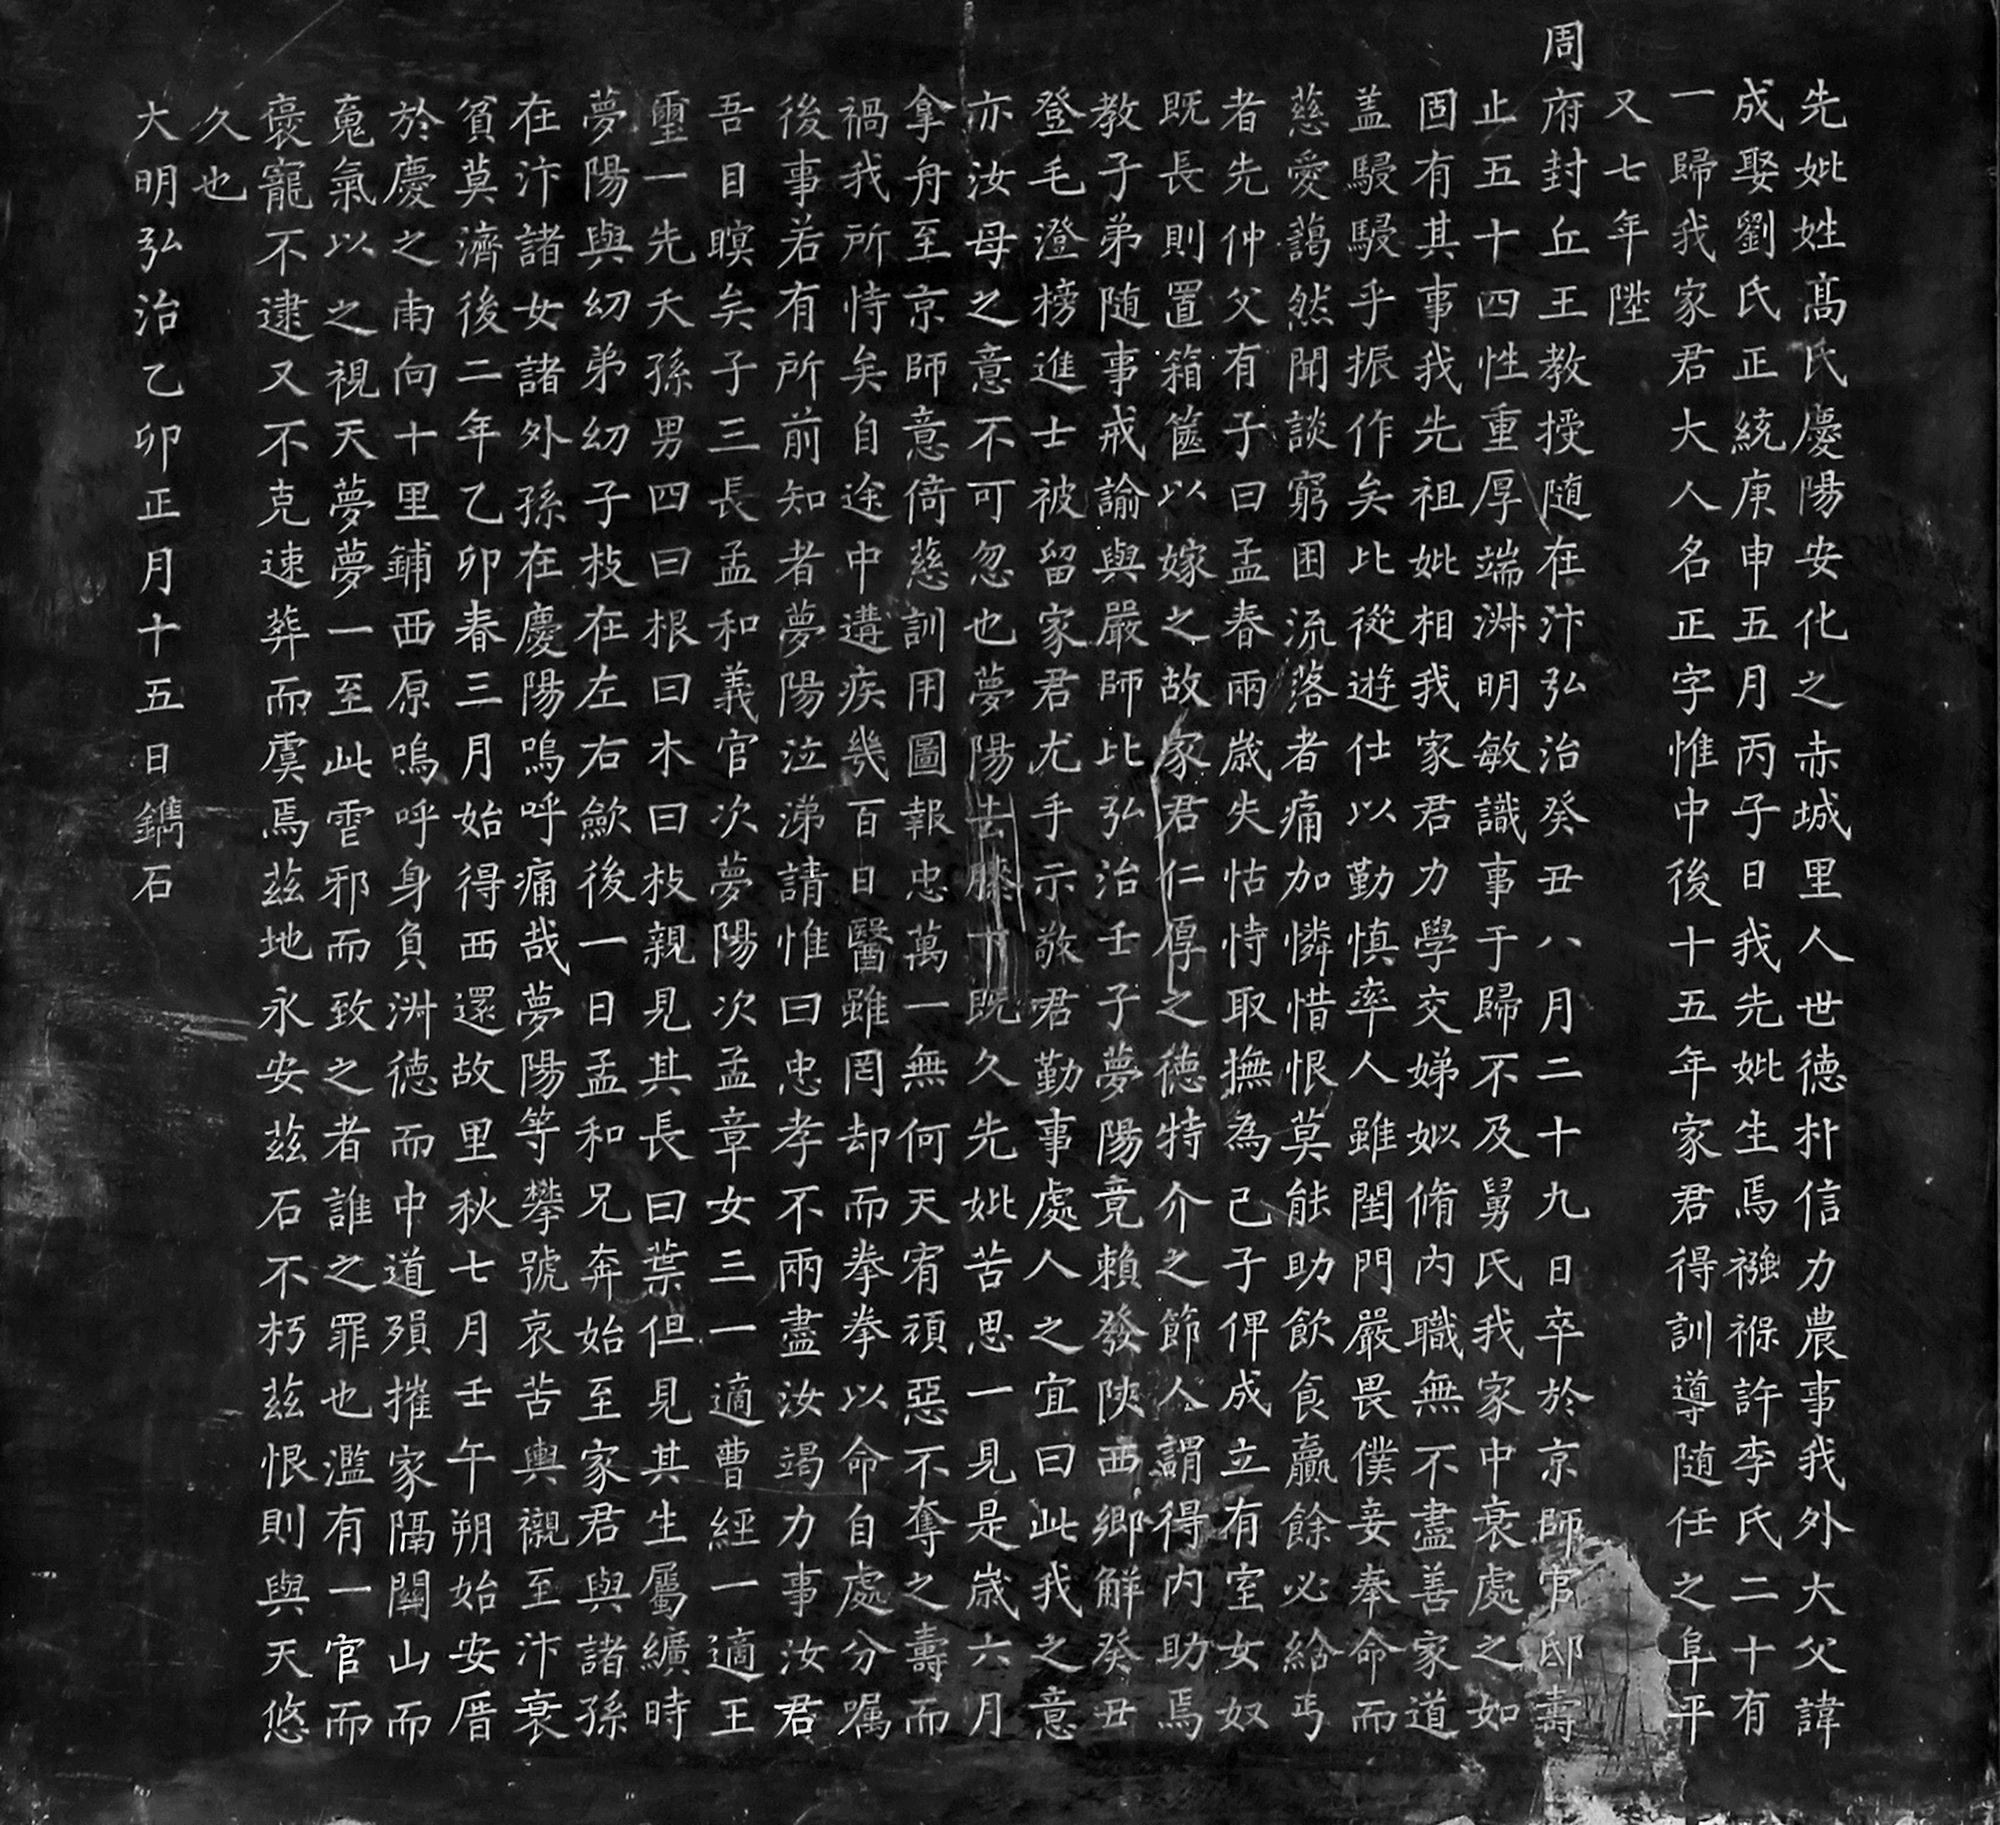 先妣姓髙氏慶陽安化之赤城里人世徳朴信力農事我外大父諱
成娶劉氏正統庚申五月丙子日我先妣生焉襁褓許李氏二十有
一歸我家君大人名正字惟中後十五年家君得訓導随任之阜平
又七年陞
周府封丘王教授随在汴弘治癸丑八月二十九日卒於京師官邸壽
止五十四性重厚端淋明敏識事于歸不及舅氏我家中衰處之如
固有其事我先祖妣相我家君力學交娣姒脩内職無不盡善家道
盖駸駸乎振作矣比從逰仕以勤慎率人雖閨門嚴畏僕妾奉命而
慈愛藹然聞談窮困流落者痛加憐惜恨莫能助飲食贏餘必給丐
者先仲父有子曰孟春兩歳失怙恃取撫為己子俾成立有室女奴
既長則置箱篋以嫁之故家君仁厚之徳特介之節人謂得内助焉
教子弟随事戒諭與嚴師比弘治壬子夢陽竟賴發陝西郷解癸丑
登毛澄榜進士被留家君尤手示敬君勤事處人之宜曰此我之意
亦汝母之意不可忽也夢陽去膝下既久先妣苦思一見是歳六月
拿舟至京師意倚慈訓用圖報忠萬一無何天宥頑惡不奪之壽而
禍我所恃矣自途中遘疾幾百日醫雖罔却而拳拳以命自處分嘱
後事若有所前知者夢陽泣涕請惟曰忠孝不兩盡汝竭力事汝君
吾目瞑矣子三長孟和義官次夢陽次孟章女三一適曹經一適王
璽一先夭孫男四曰根曰木曰枝親見其長曰葉但見其生屬纊時
夢陽與幼弟幼子枝在左右歛後一日孟和兄奔始至家君與諸孫
在汴諸女諸外孫在慶陽嗚呼痛哉夢陽等攀號哀苦輿櫬至汴衰
貧莫濟後二年乙卯春三月始得西還故里秋七月壬午朔始安厝
於慶之南向十里鋪西原嗚呼身負淋徳而中道殞摧家隔關山而
䰟氣以之視天夢夢一至此霅邪而致之者誰之罪也濫有一官而
褒寵不逮又不克速葬而虞焉茲地永安茲石不朽茲恨則與天悠
久也
大明弘治乙卯正月十五日鐫石